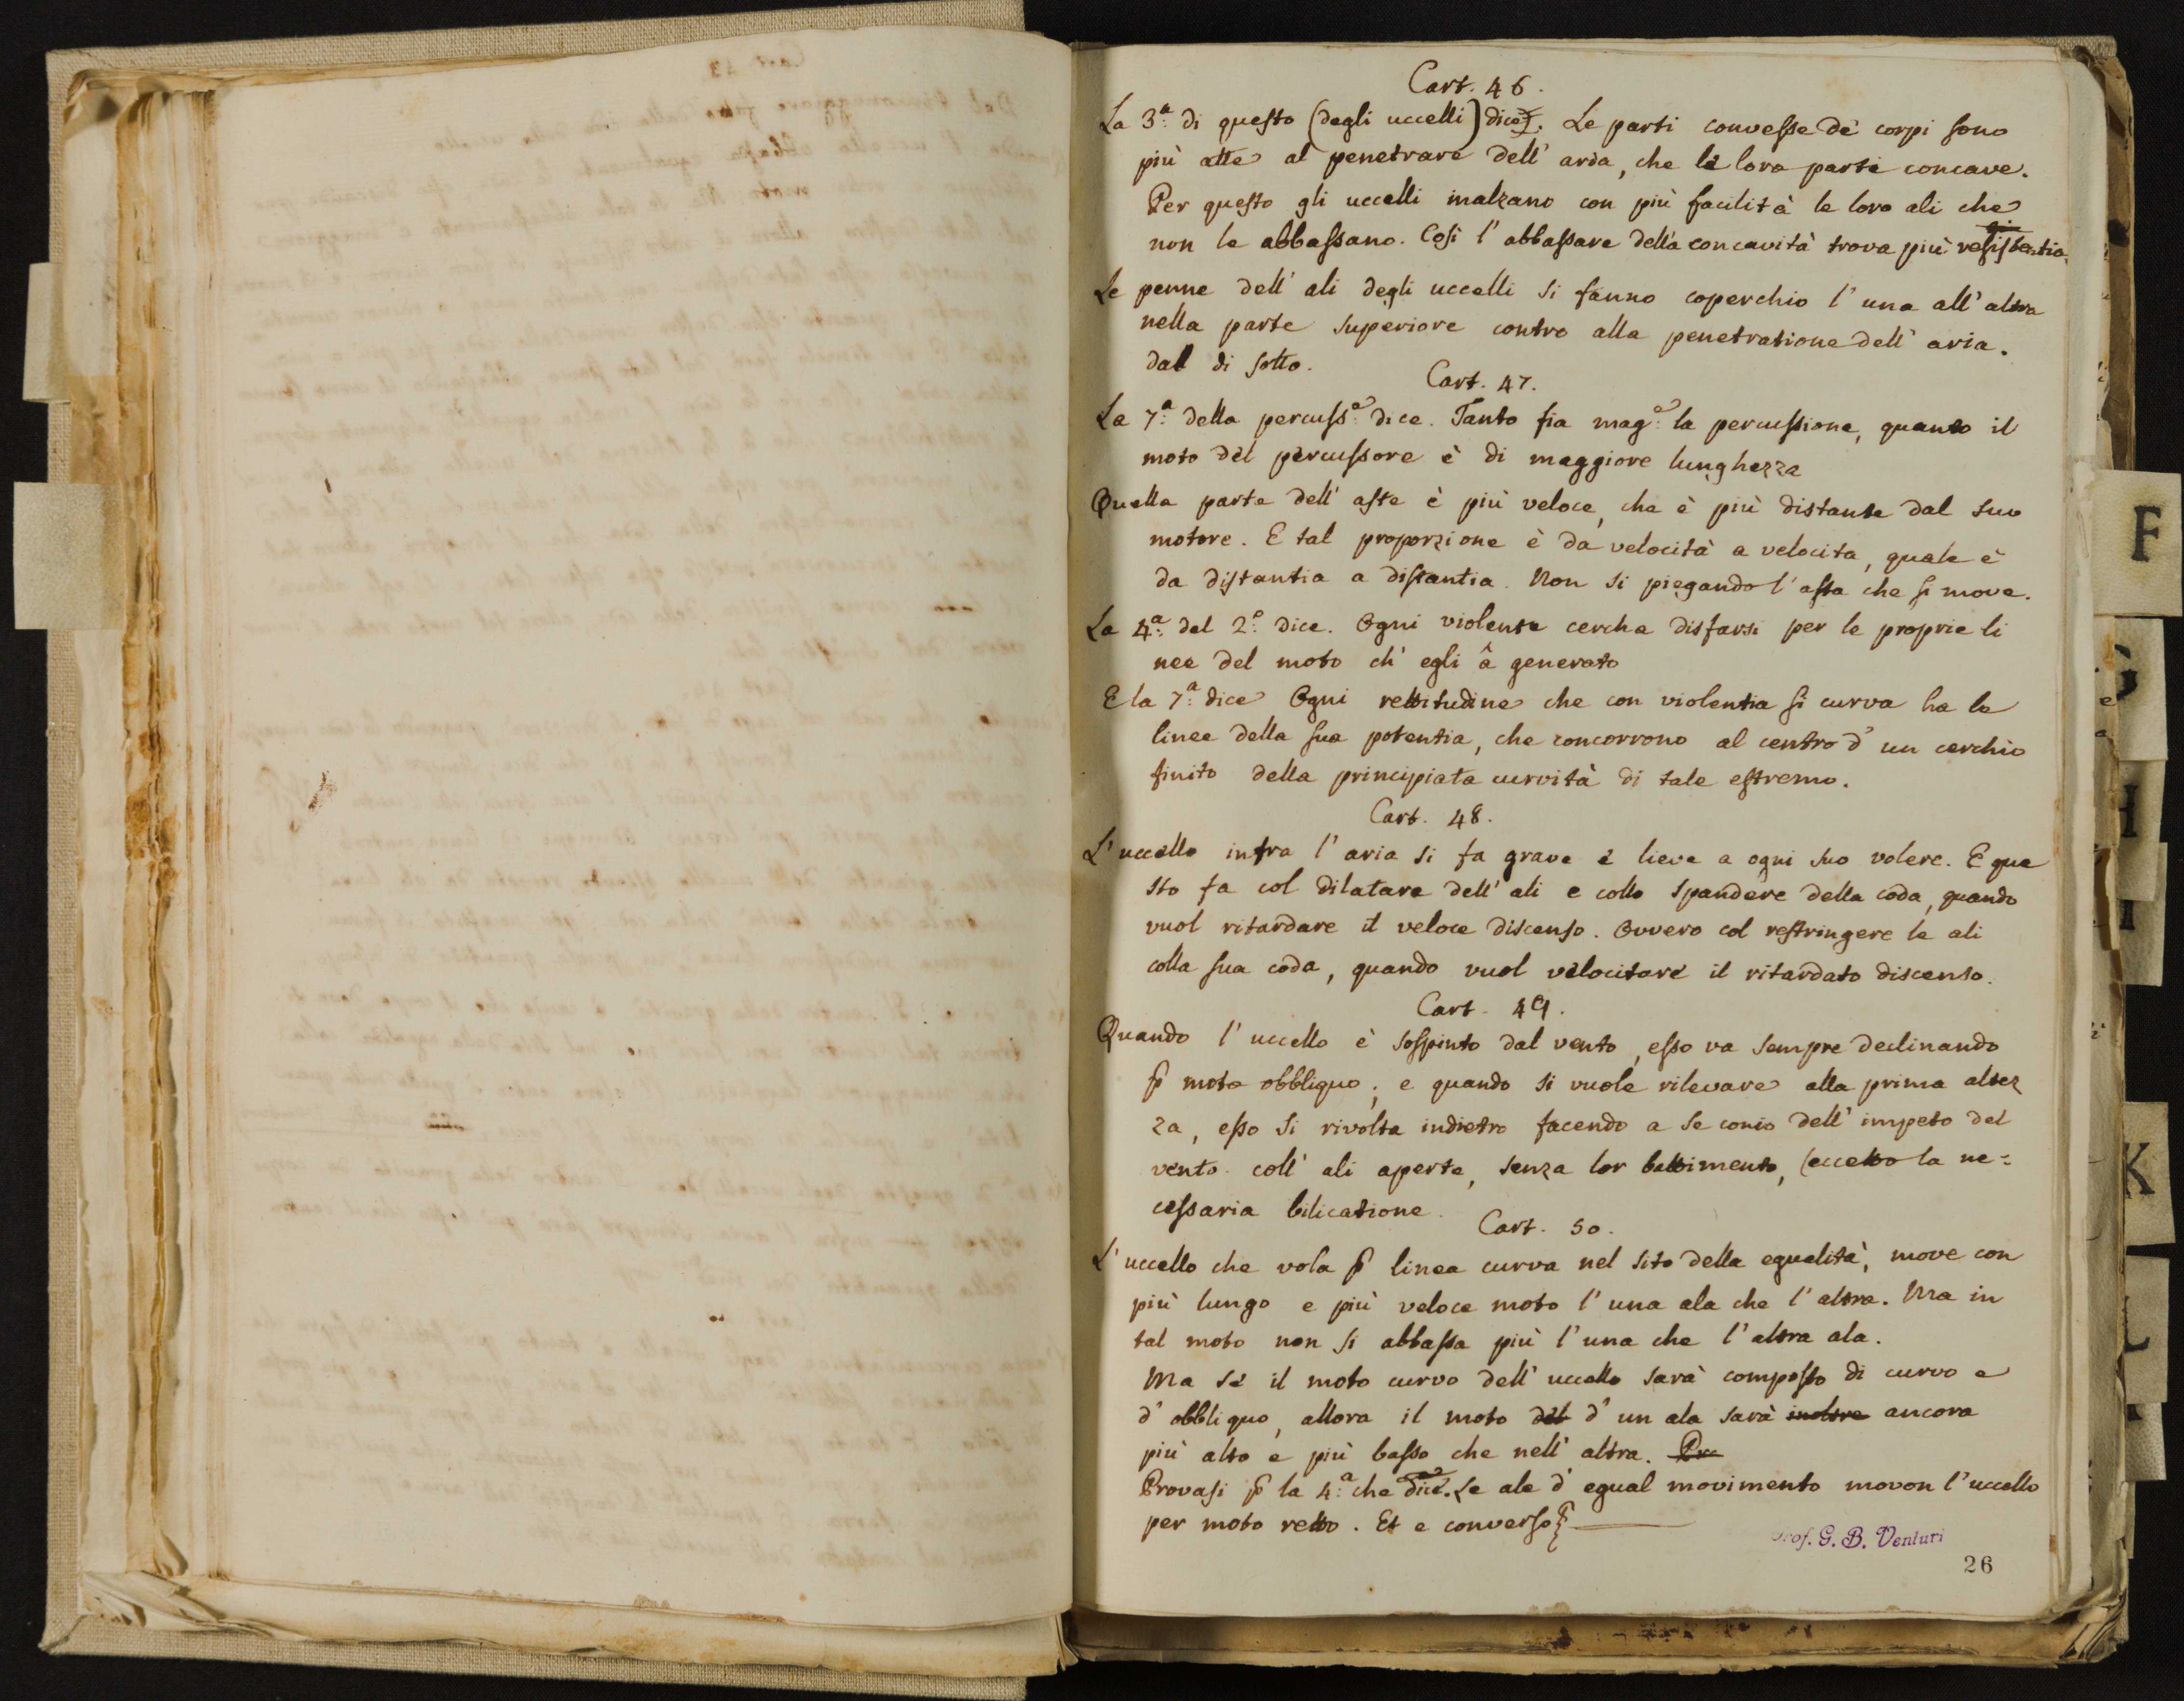 Cart. 46.
La 3.ª di questo (degli uccelli) dice. Le parti convesse de' corpi sono
più atte al penetrare dell' aria, che le loro parti concave.
Per questo gli uccelli inalzano con più facilità le loro ali che
non le abbassano. Così l' abbassare della concavità trova più resistentia.
Le penne dell' ali degli uccelli si fanno coperchio l' una all' altra
nella parte superiore contro alla penetratione dell' aria.
dal di sotto.
Cart. 47.
La 7.ª della percuss.e dice. Tanto fia mag.e la percussione, quanto il
moto del percussore è di maggiore lunghezza
Quella parte dell' aste è più veloce, che è più distante dal suo
motore. E tal proporzione è da velocità a velocita, quale è
da distantia a distantia. Non si piegando l' asta che si move.
La 4.ª del 2.º dice. Ogni violente cercha disfarsi per le proprie li
nee del moto ch' egli â generato
E la 7.ª dice Ogni rettitudine che con violentia si curva ha le
linee della sua potentia, che concorrono al centro d' un cerchio
finito della principiata curvità di tale estremo.
Cart. 48.
L' uccello infra l' aria si fa grave e lieve a ogni suo volere. E que
sto fa col dilatare dell' ali e collo spandere della coda, quando
vuol ritardare il veloce discenso. Ovvero col restringere le ali
colla sua coda, quando vuol velocitare il ritardato discenso.
Cart. 49.
Quando l' uccello è sospinto dal vento, esso va sempre declinando
ꝑ moto obbliquo; e quando si vuole rilevare alla prima altez
za, esso si rivolta indietro facendo a se conio dell' impeto del
vento coll' ali aperte, senza lor battimento, (eccetto la ne=
cessaria bilicatione.
Cart. 50.
L' uccello che vola ꝑ linea curva nel sito della egualità, move con
più lungo e più veloce moto l' una ala che l' altra. Ma in
tal moto non si abbassa più l' una che l' altra ala.
Ma se il moto curvo dell' uccello sarà composto di curvo e
d' obbliquo, allora il moto del d' un ala sarà inoltre ancora
più alto e più basso che nell' altra. Pro
Provasi ꝑ la 4.ª che dice. Le ale d' egual movimento movon l' uccello
per moto retto. Et e converso
Prof. G. B. Venturi
26
F
H
I
K
L